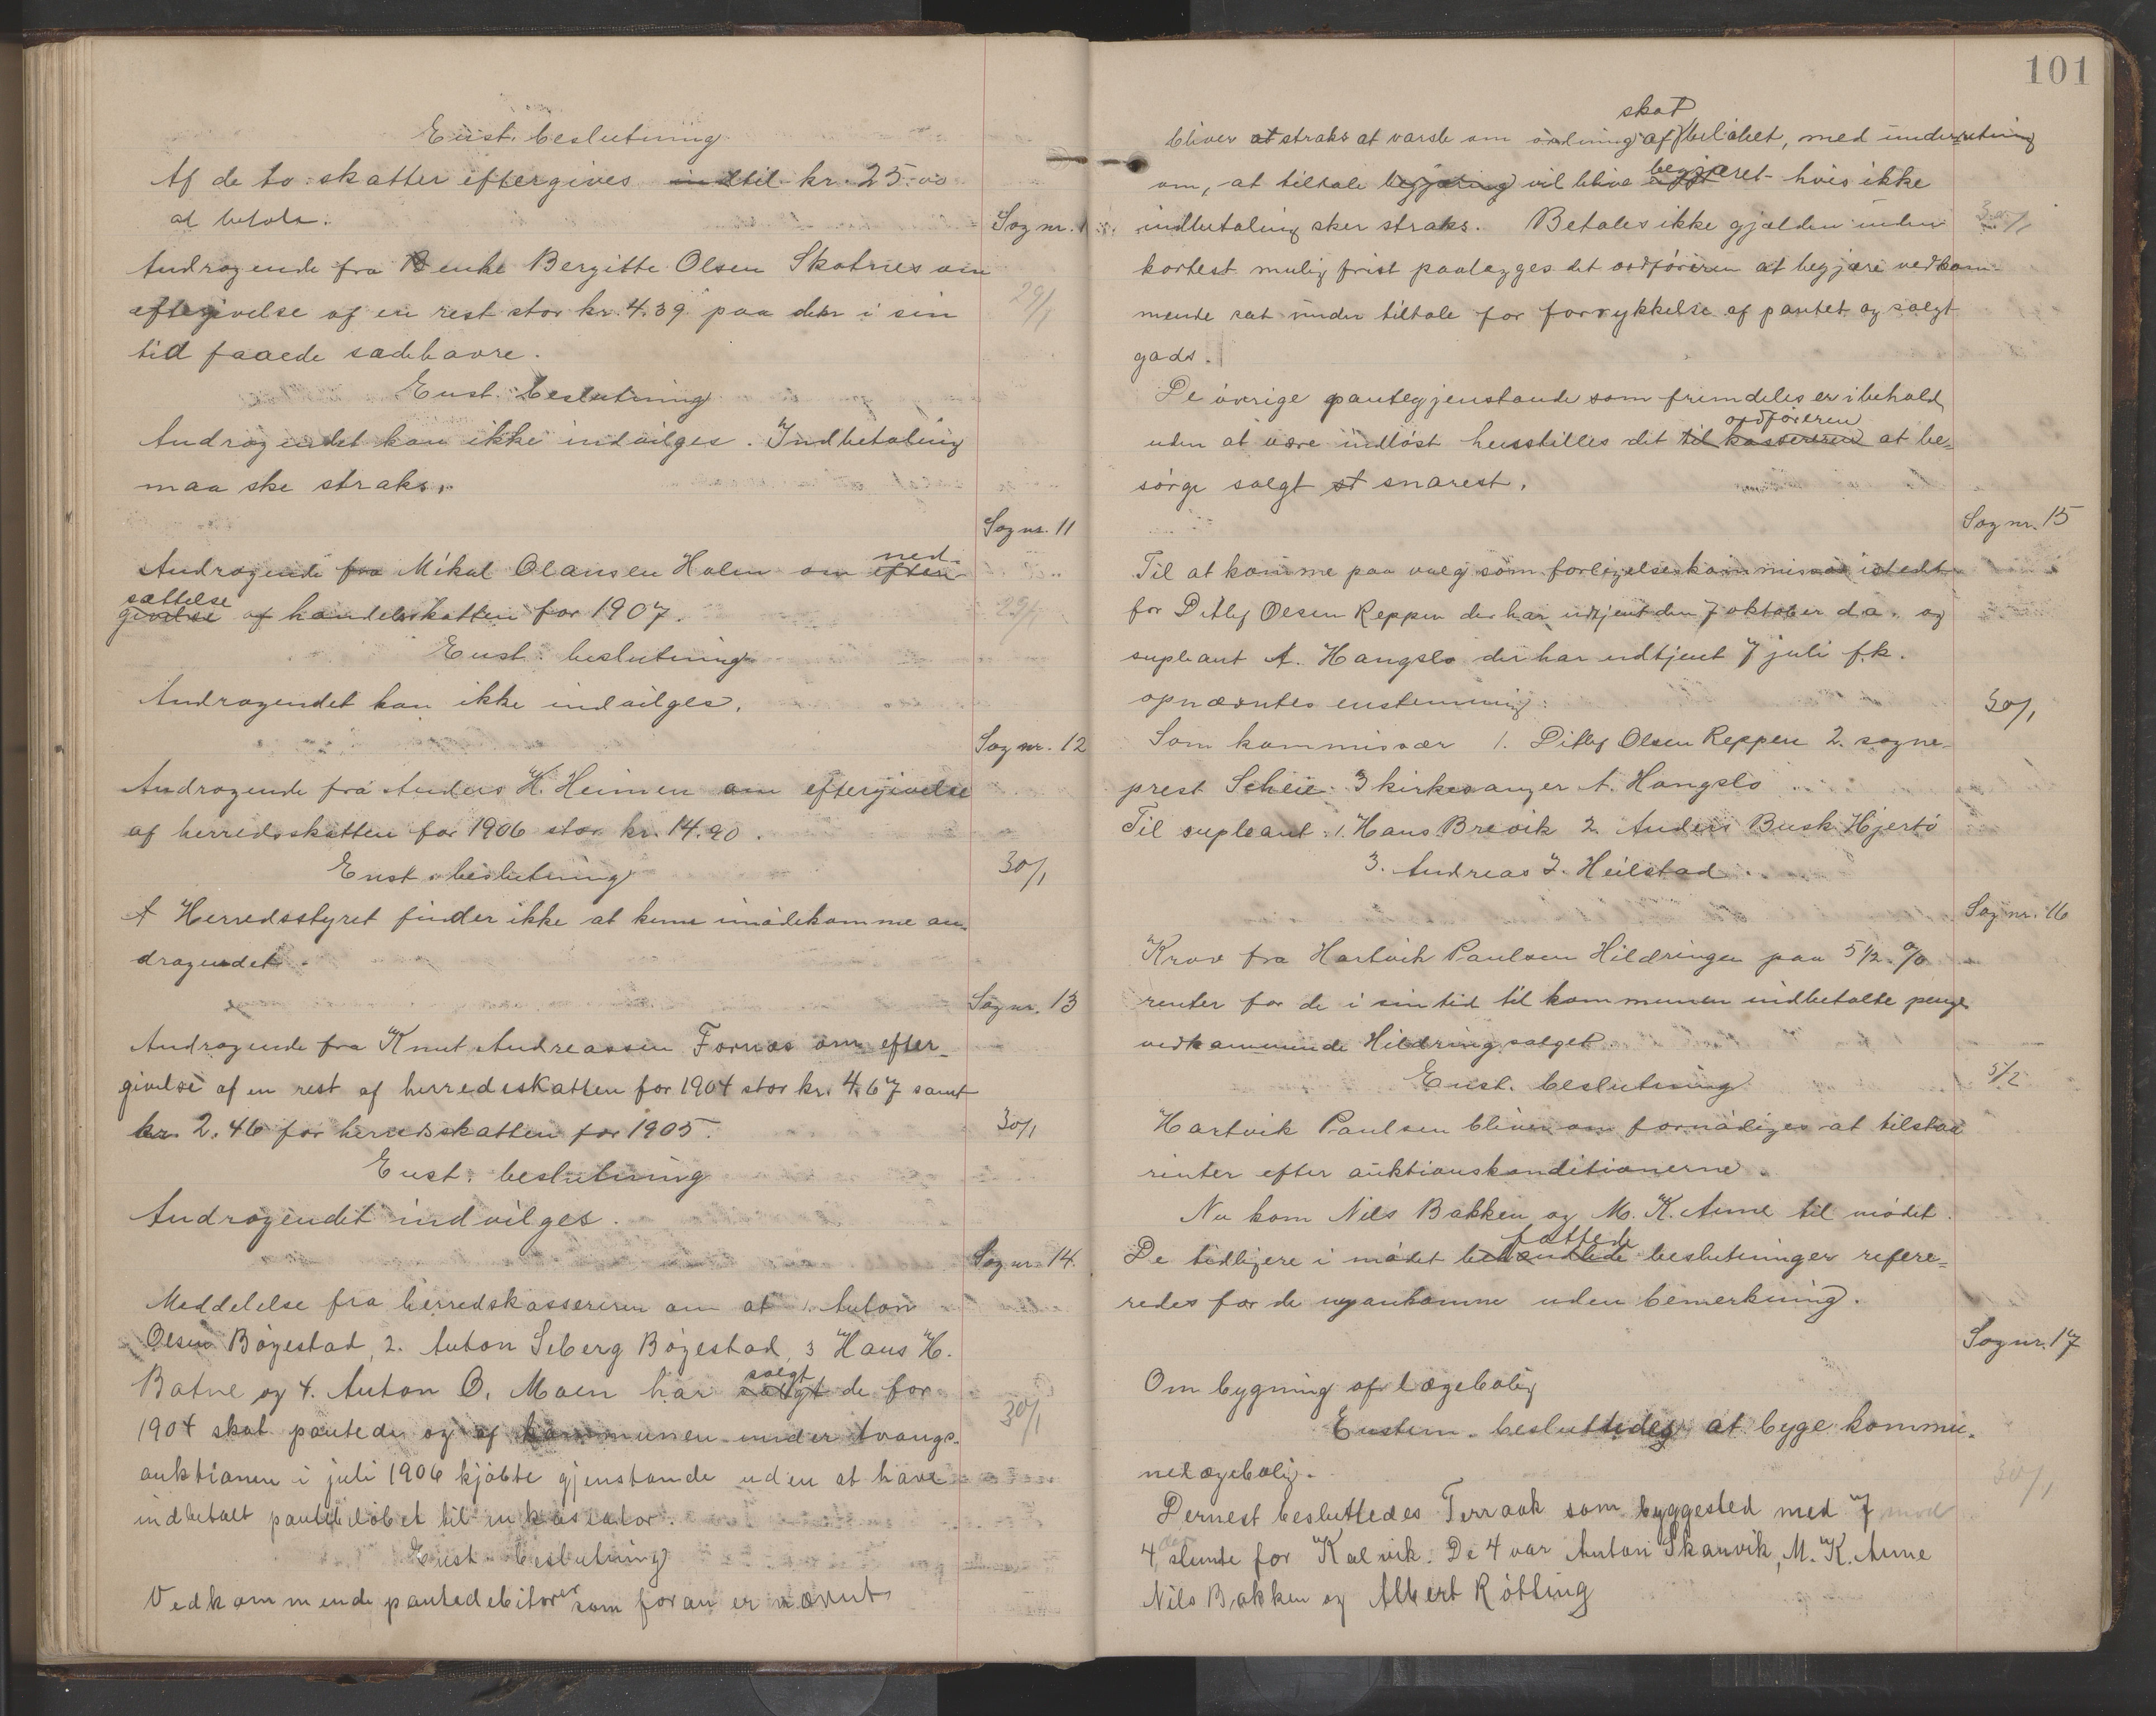 Enst. beslutning
Af de to skatter eftergives indtil kr. 25.00
at betale.
Sag nr. 1
Andragende fra Enke Bergitte Olsen Skotnes om
eftergivelse af en rest stor kr. 4.39 paa den i sin
29/1
tid faaede sædehavre.
Enst. beslutning
Andragendet kan ikke indvilges. Indbetaling
maa ske straks.
Sag nr. 11
Andragende fra Mikal Olausen Holm om ned-
efter
sættelse
givelse af handelsskatten for 1907.
29/1
Enst. beslutning
Andragendet kan ikke indvilges.
Sag nr. 12
Andragende fra Anders H. Heimen om eftergivelse
af herredsskatten for 1906 stor kr. 14.90.
Enst. beslutning
30/1
Herredsstyret finder ikke at kunne imødekomme an-
dragendet.
Sag nr. 13
Andragende fra Knut Andreassen Fornæs om efter-
givelse af en rest af herredsskatten for 1904 stor kr. 4.67 samt
kr. 2.46 for herredsskatten for 1905.
30/1
Enst. beslutning
Andragendet indvilges.
Sag nr. 14.
Meddelelse fra herredskassereren om at 1. Anton
Olsen Bøgestad, 2. Anton Seberg Bøgestad, 3 Hans H.
Batne og 4. Anton O. Moen har solgt de for
30/1
1904 skat pantede og af kommunen under tvangs-
auktionen i juli 1906 kjøbte gjenstande uden at have
indbetalt pantebeløbet til inkassator.
Enst. beslutning
Vedkommende pantedebitorer som foran er nævnt
101
skat
bliver at straks at varsle om ordning af beløbet, med underretning
om, at tiltale begjæring vil blive begjæret hvis ikke
indbetaling sker straks. Betales ikke gjælden inden
30/1
kortest mulig frist paalægges det ordføreren at begjære vedkom-
mende sat under tiltale for forrykkelse af pantet og solgt
gods.
De øvrige pantegjenstande som fremdeles er i behold
ordføreren
uden at være indløst henstilles det til kassereren at be-
sørge solgt st snarest.
Sag nr. 15
Til at komme paa valg som forligelseskommissær istedet
for Ditlef Olsen Reppen der har udtjent den 7 oktober d.a. og
supleant A. Hangslo der har udtjent 7 juli f.k.
opnævntes enstemmig:
30/1
Som kommissær 1. Ditlef Olsen Reppen 2. sogne-
prest Scheie 3 kirkesanger A. Hangslo
Til supleant: 1. Hans Brevik 2. Anders Busk Hjertø
3. Andreas J. Heilstad.
Sag nr. 16
Krav fra Hartvik Paulsen Hildringen paa 5 1/2 %
renter for de i sin tid til kommunen indbetalte penge
vedkommende Hildringsalget.
Enst. beslutning
5/2
Hartvik Paulsen bliver om fornødiges at tilstaa
renter efter auktionskonditionerne.
Nu kom Nils Bakken og M. K. Aune til mødet.
fattede
De tidligere i mødet behandlede beslutninger refere-
redes for de nyankomne uden bemerkning.
Sag nr. 17
Om bygning af lægebolig
Enstem. besluttedes at byge kommu-
nelægebolig.
30/1
Dernest besluttedes Terraak som byggested med 7 mod
4, stemte for Kalvik. De 4 var Anton Skanvik, M. K. Aune
Nils Bakken og Albert Røtting